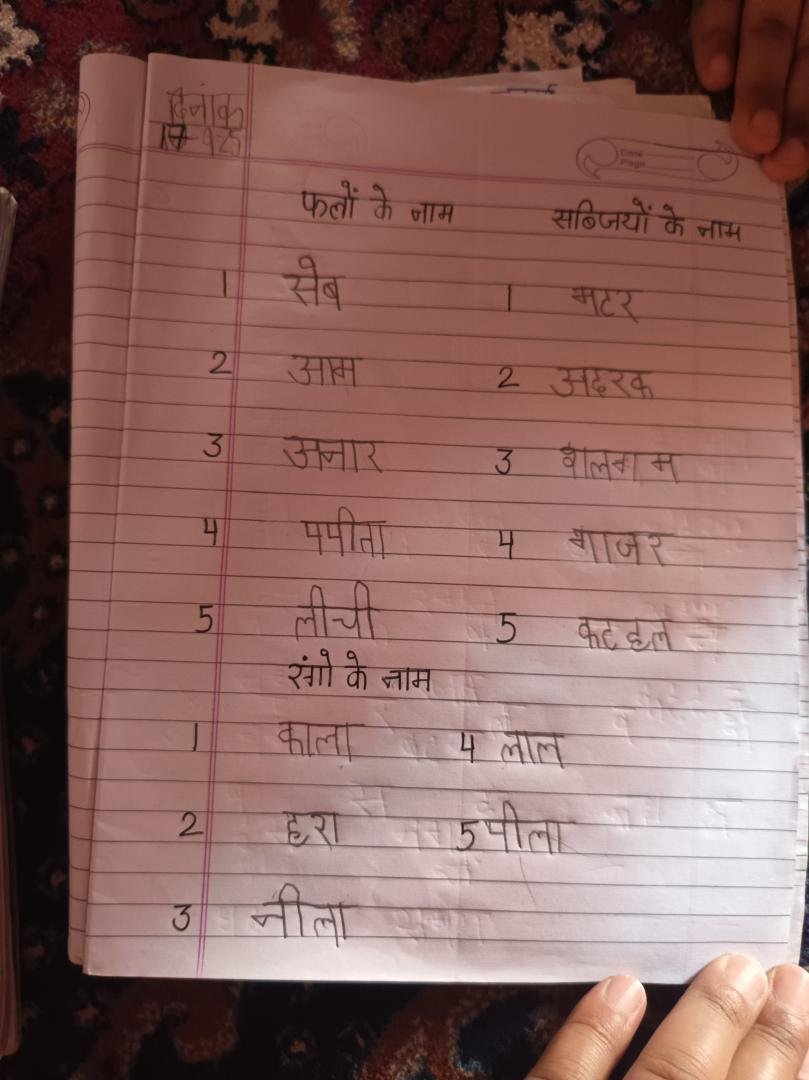 दिनांक
17-9-25
Date
Page
फलों के नाम सब्जियों के नाम
1 सेब 1 मटर
2 आम 2 अदरक
3 अनार 3 शलगम
4 पपीता 4 गाजर
5 लीची 5 कटहल
रंगो के नाम
1 काला 4 लाल
2 हरा 5 पीला
3 नीला